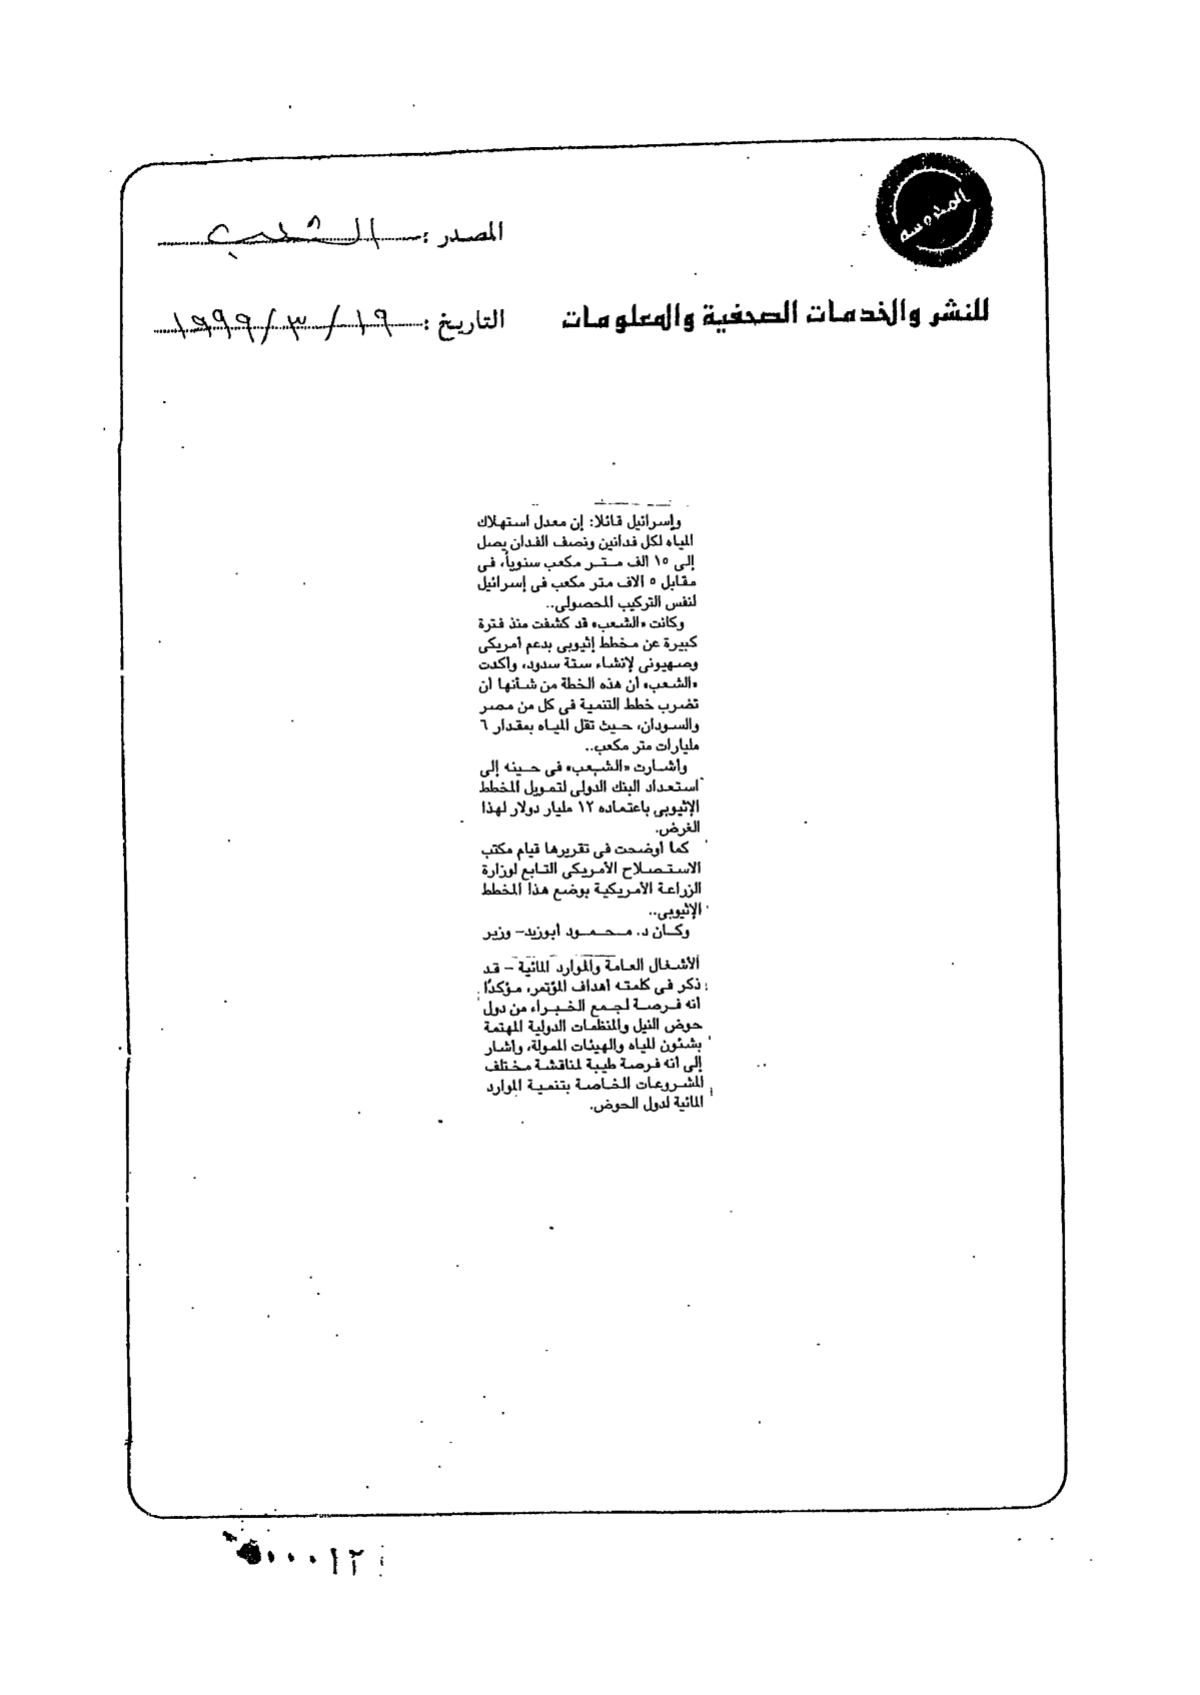 المصدر : الشعب
للنشر والخدمات الصحفية والمعلومات
التاريخ : ١٩ / ٣ / ١٩٩٩
وإسرائيل قائلا: إن معدل استهلاك
المياه لكل فدانين ونصف الفدان يصل
إلى ١٥ الف متر مكعب سنوياً، فى
مقابل ٥ الاف متر مكعب فى إسرائيل
لنفس التركيب المحصولى..
وكانت «الشعب» قد كشفت منذ فترة
كبيرة عن مخطط إثيوبى بدعم أمريكى
وصهيونى لإنشاء ستة سدود، وأكدت
«الشعب» أن هذه الخطة من شأنها أن
تضرب خطط التنمية فى كل من مصر
والسودان، حيث تقل المياه بمقدار ٦
مليارات متر مكعب..
وأشارت «الشعب» فى حينه إلى
استعداد البنك الدولى لتمويل المخطط
الإثيوبى باعتماده ١٢ مليار دولار لهذا
الغرض.
كما أوضحت فى تقريرها قيام مكتب
الاستصلاح الأمريكى التابع لوزارة
الزراعة الأمريكية بوضع هذا المخطط
الإثيوبى..
وكان د. محمود أبوزيد – وزير
الأشغال العامة والموارد المائية – قد
ذكر فى كلمته أهداف المؤتمر، مؤكدًا
أنه فرصة لجمع الخبراء من دول
حوض النيل والمنظمات الدولية المهتمة
بشئون المياه والهيئات الممولة، وأشار
إلى أنه فرصة طيبة لمناقشة مختلف
المشروعات الخاصة بتنمية الموارد
المائية لدول الحوض.